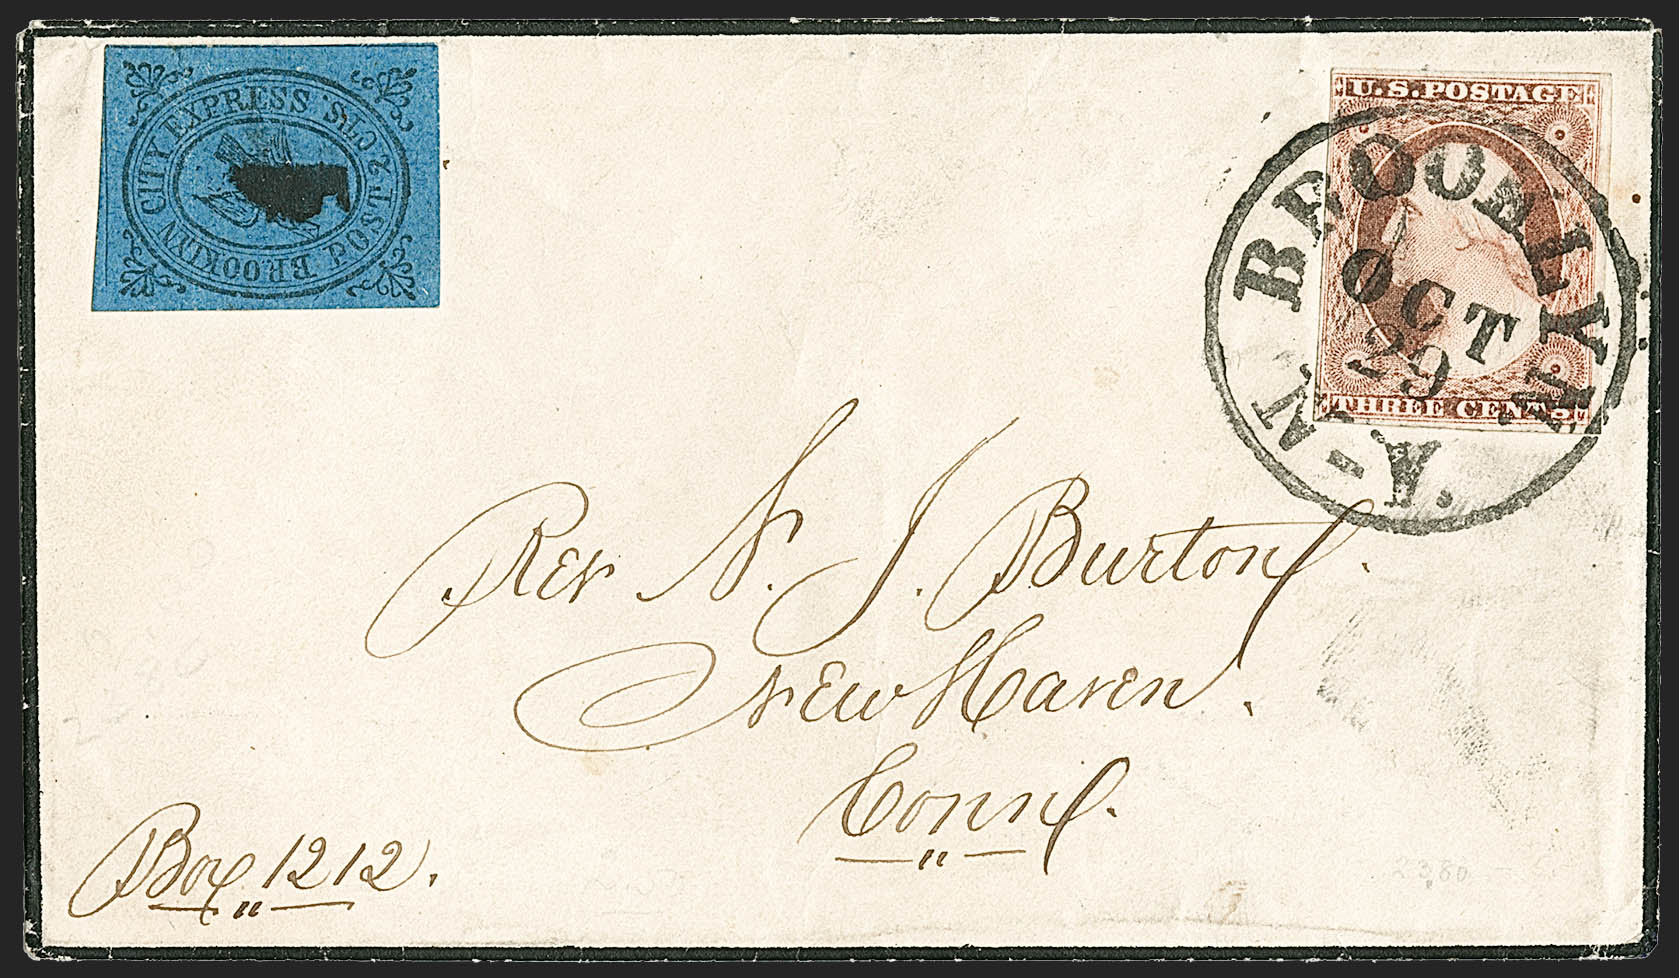 BROOKLYN CITY EXPRESS POST
2 CTS.
U.S.POSTAGE
THREE CENTS
BROOKLYN
N-Y.
OCT
29
Rev N. J. Burton.
New Haven.
Conn.
Box 1212.
2380